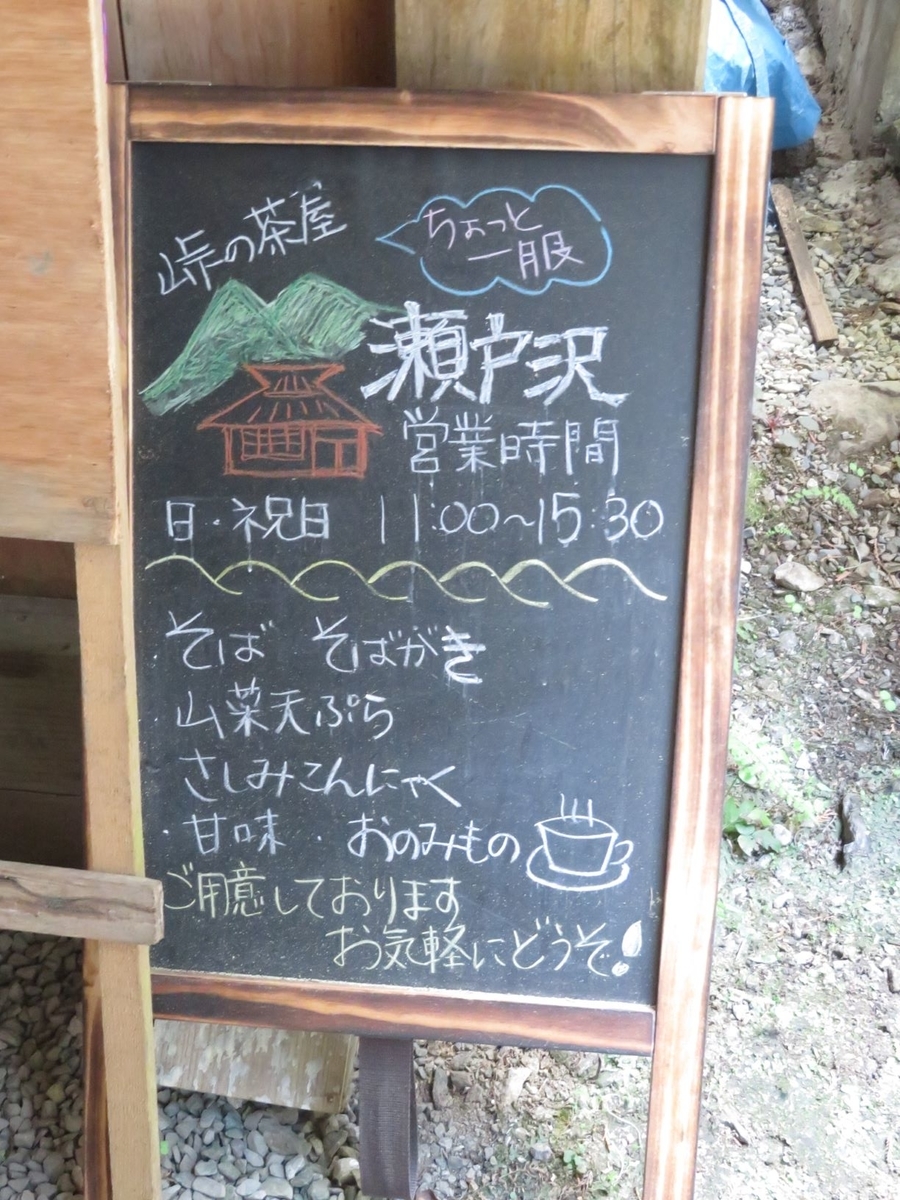 峠の茶屋
ちょっと
一服
瀬戸沢
営業時間
日・祝日 11:00~15:30
そば そばがき
山菜天ぷら
さしみこんにゃく
・甘味・おのみもの
ご用意しております
お気軽にどうぞ!